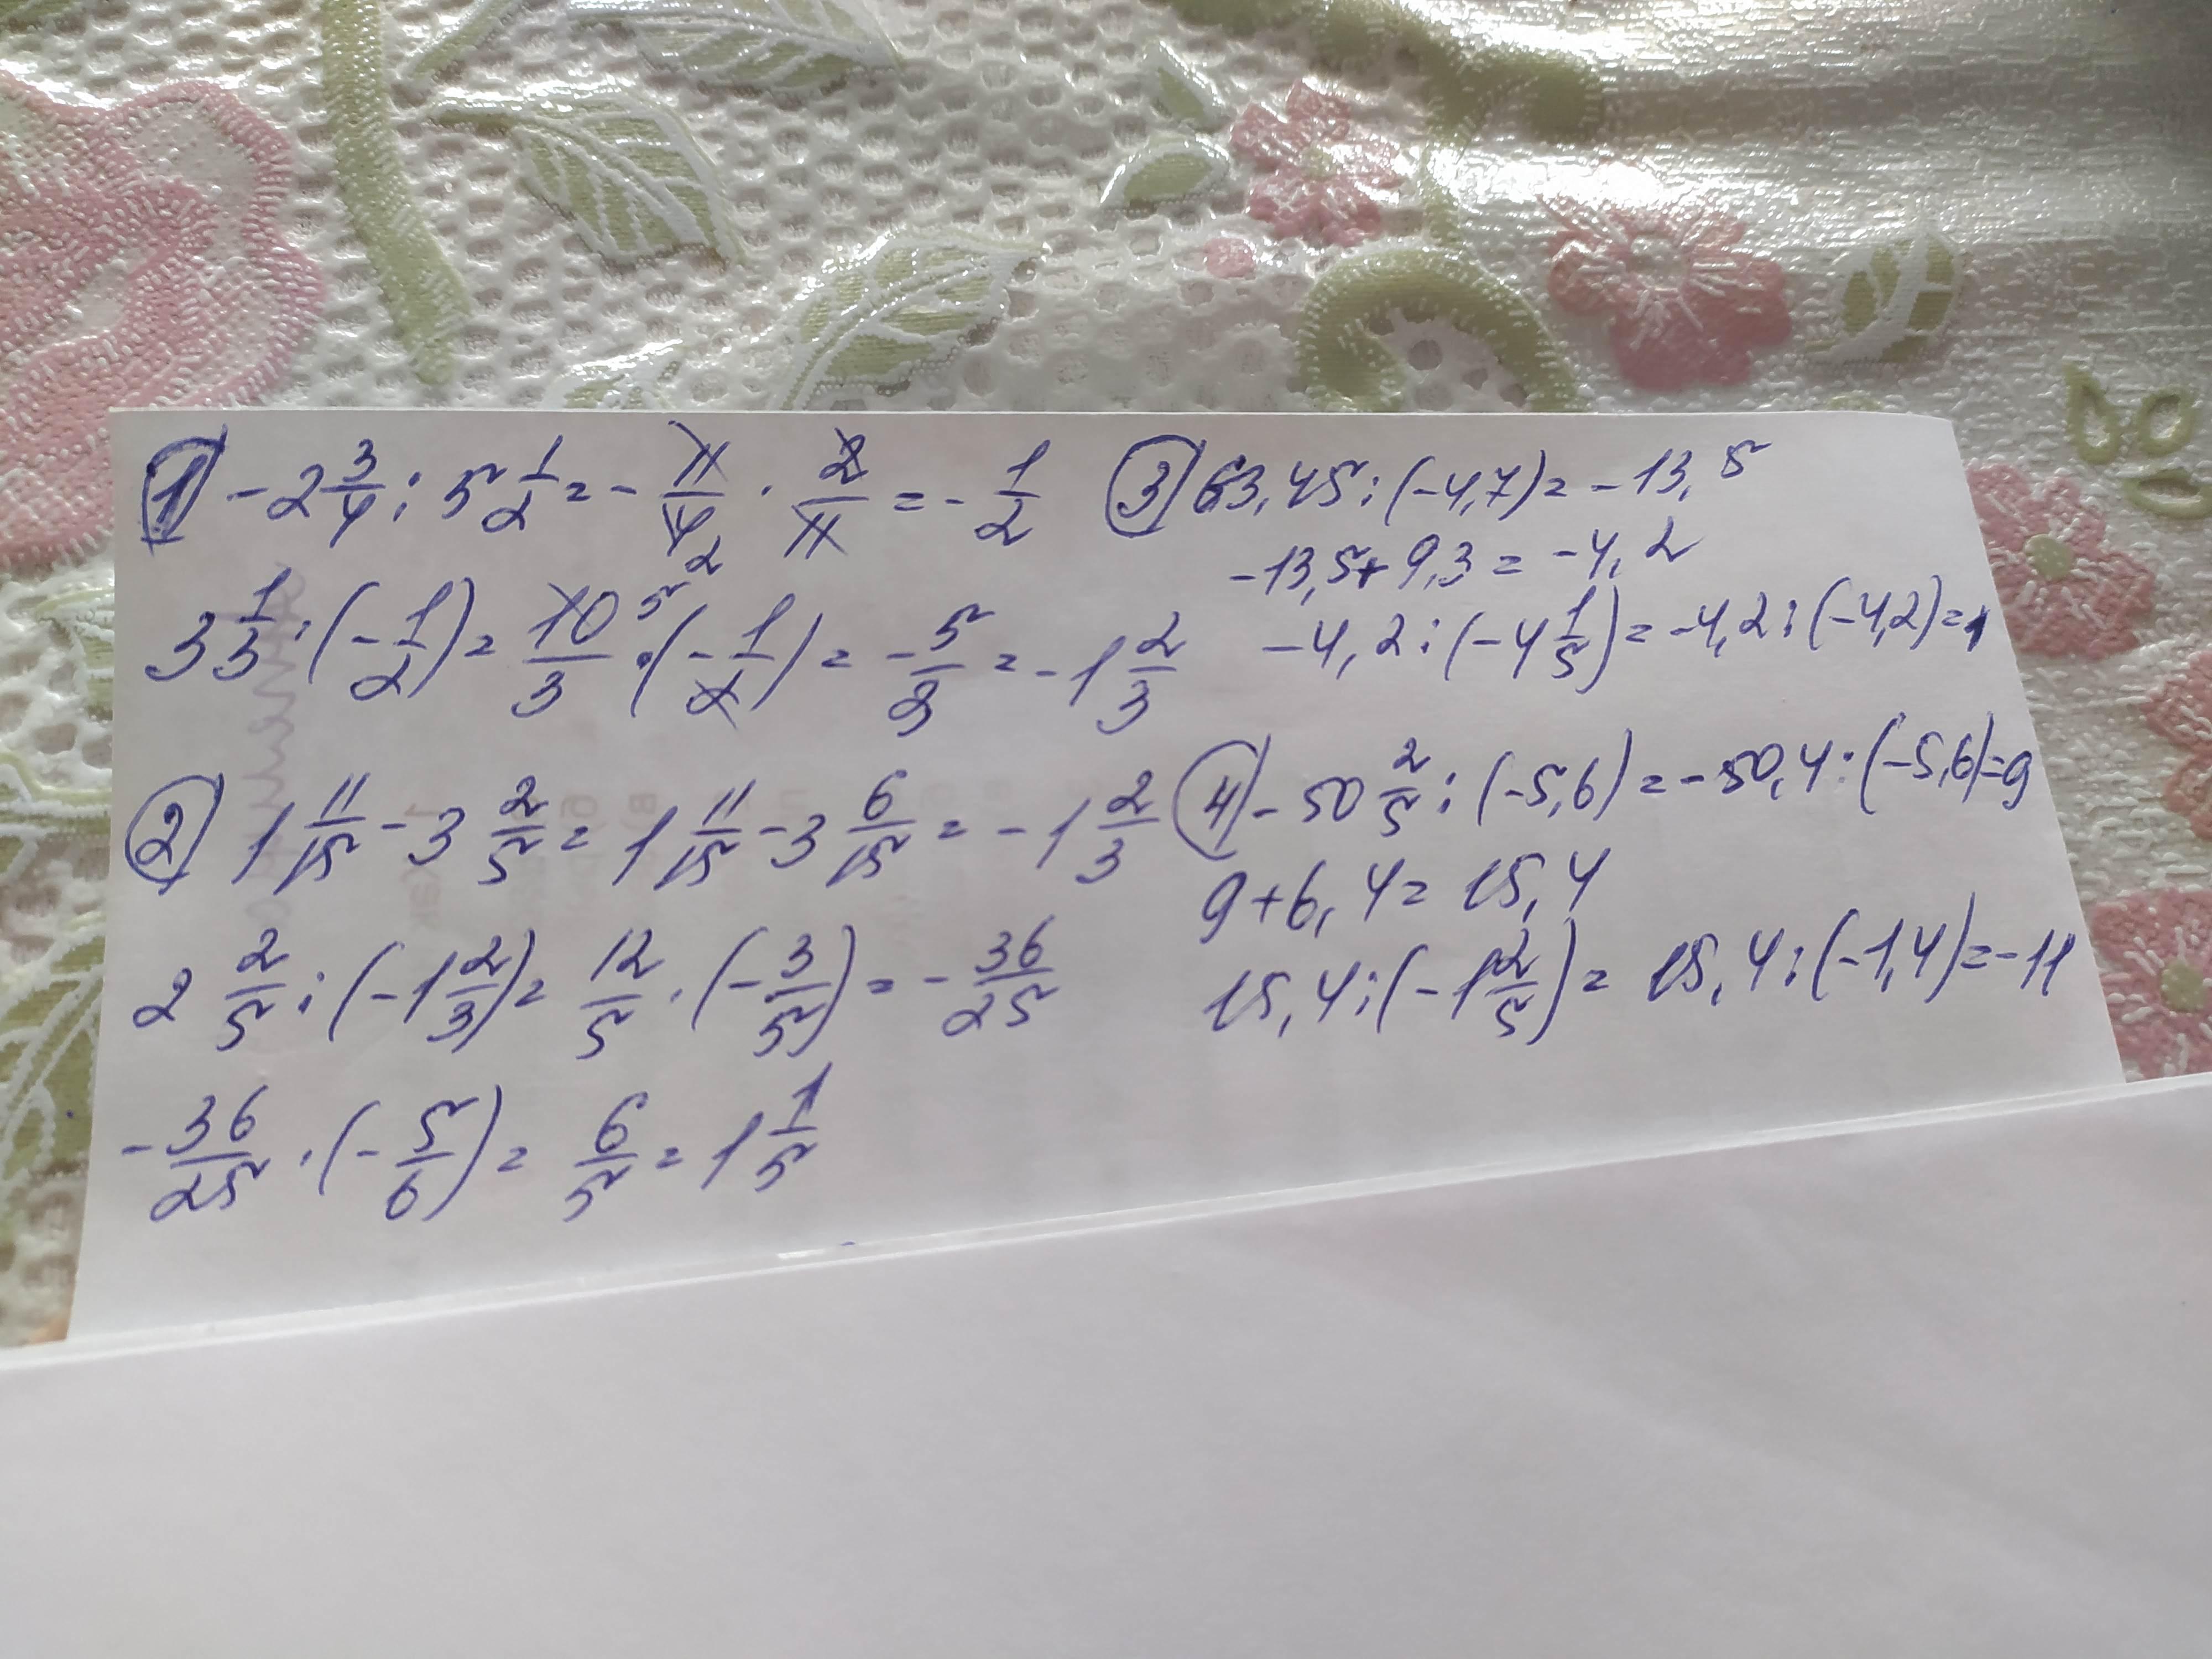 ① -2 3/4 : 5 1/2 = - 11/4 2 · 2/11 = - 1/2
3 1/3 · (- 1/2) = 10/3 5 · (- 1/2) = - 5/3 = -1 2/3
② 1 11/15 - 3 2/5 = 1 11/15 - 3 6/15 = -1 2/3
2 2/5 : (-1 2/3) = 12/5 · (- 3/5) = - 36/25
- 36/25 · (- 5/6) = 6/5 = 1 1/5
③ 63,45 : (-4,7) = -13,5
-13,5 + 9,3 = -4,2
-4,2 : (-4 1/5) = -4,2 : (-4,2) = 1
④ -50 2/5 : (-5,6) = -50,4 : (-5,6) = 9
9 + 6,4 = 15,4
15,4 : (-1 2/5) = 15,4 : (-1,4) = -11